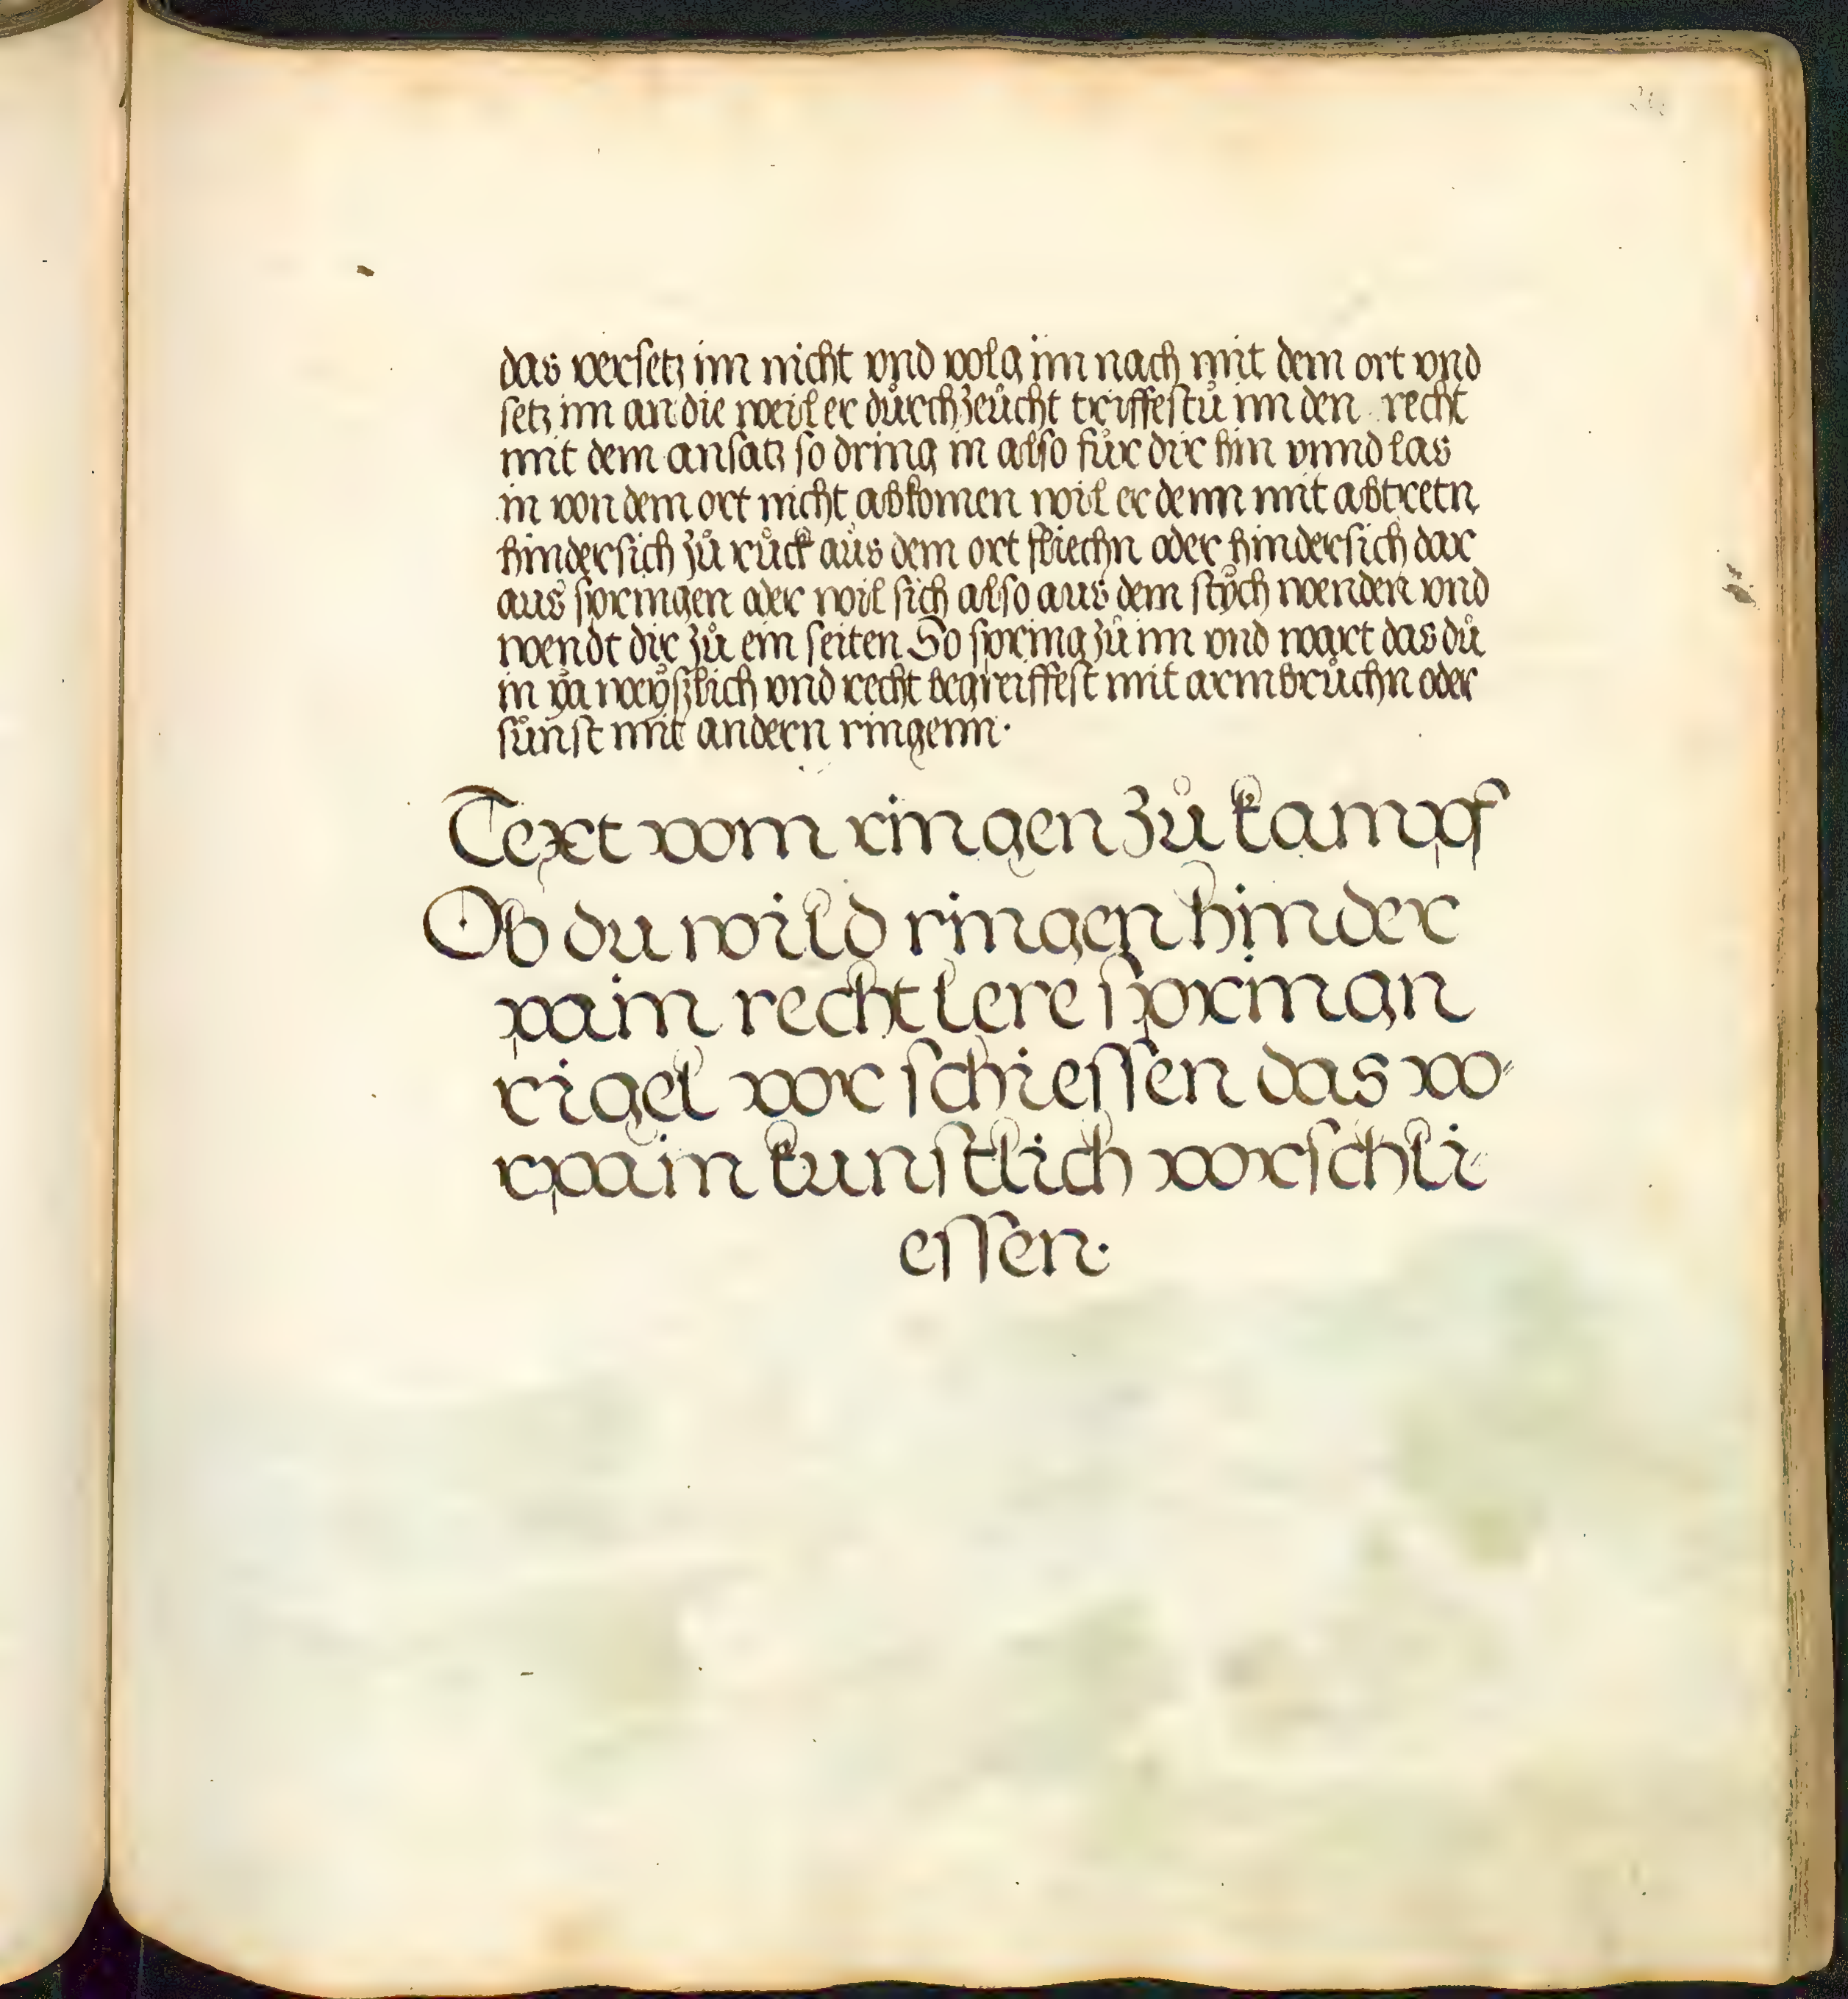 das versetz im nicht vnd volg im nach mit dem ort vnd
setz im an die weil er důrchzeůcht triffestů im den recht
mit dem ansatz so dring in also fůr dir hin vnnd las
in von dem ort nicht abkomen wil er denn mit abtretn
hindersich zů růck aůs dem ort fliechn oder hindersich dar
aus springen oder wil sich also aus dem stŷch wenden vnd
wendt dir zů ein seiten So spring zů im vnd wart das dů
in ya weyszlich vnd recht begreiffest mit armbrůchn oder
sůnst mit andern ringenn·
Text vom ringen zů kampf
Ob du wild ringen hinder
pain recht lere springn
rigel vor schiessen das vo-
rpain kunstlich vorschli-
essen·